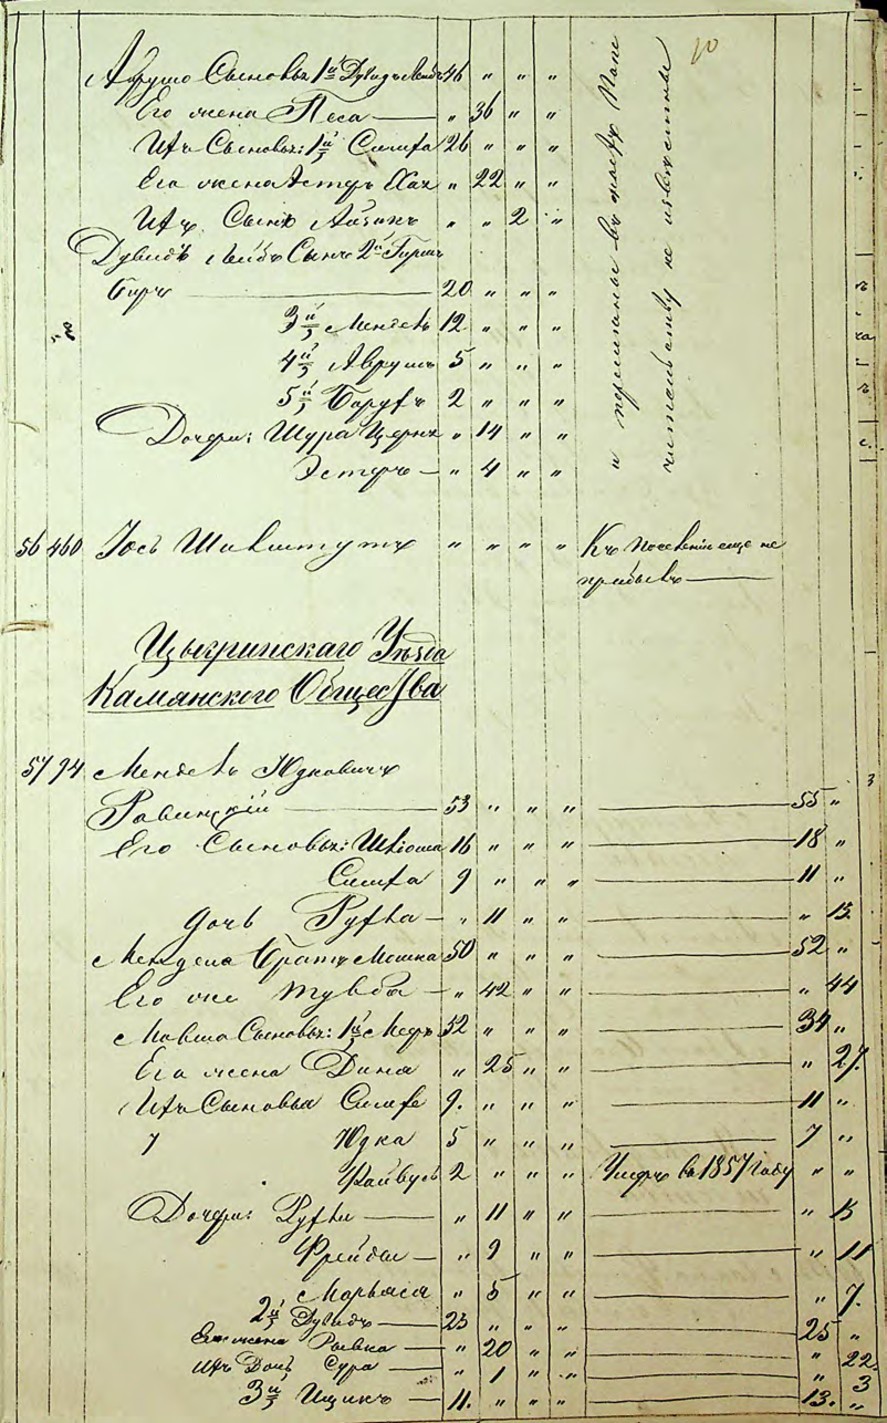 10
Аврумо Сыновья 1й Дувидъ Лейбъ 46 " " "
Его жена Песа — " 36 " "
Ихъ Сыновья: 1й Симха 26 " " "
Его жена Эстеръ Хая " 22 " "
Ихъ Сынъ Айзикъ " " 2 "
Дувидъ Лейбъ Сынъ 2й Гершъ
Беръ — 20 " " "
3й Мендель 12 " " "
4й Аврумъ 5 " " "
5й Борухъ 2 " " "
Дочери: Шура " 14 " "
Эстеръ — " 4 " "
читательству не
56 460 Іось " " " " Къ поселенію еще не
прибылъ —
Цыгринскаго Уѣзда
Камянскаго Общества
57 94 Мендель Юдковичъ
Равинскій — 53 " " " — 55 "
Его Сыновья: Шліома 16 " " " — 18 "
Симха 9 " " " — 11 "
дочь Рухля — " 11 " " — " 13
Мендела Братъ Мошка 50 " " " — 52 "
Его же Тувба — " 42 " " — " 44
Мовша Сыновья: 1й 32 " " " — 34 "
Его жена Дина " 25 " " — " 27.
Ихъ Сыновья Симхе 9. " " " — 11 "
7 Юдка 5 " " " — 7 "
Файвусь 2 " " " Умеръ въ 1857 году " "
Дочери: Рухли — " 11 " " — " 13
Фрейда — " 9 " " — " 11
Марьяся " 5 " " — " 7.
2й Дувидъ — 23 " " " — 25 "
Его жена Ривка — " 20 " " — " 22.
Ихъ Дочь Сура — " 1 " " — " 3
3й Ицикъ — 11. " " " — 13. "